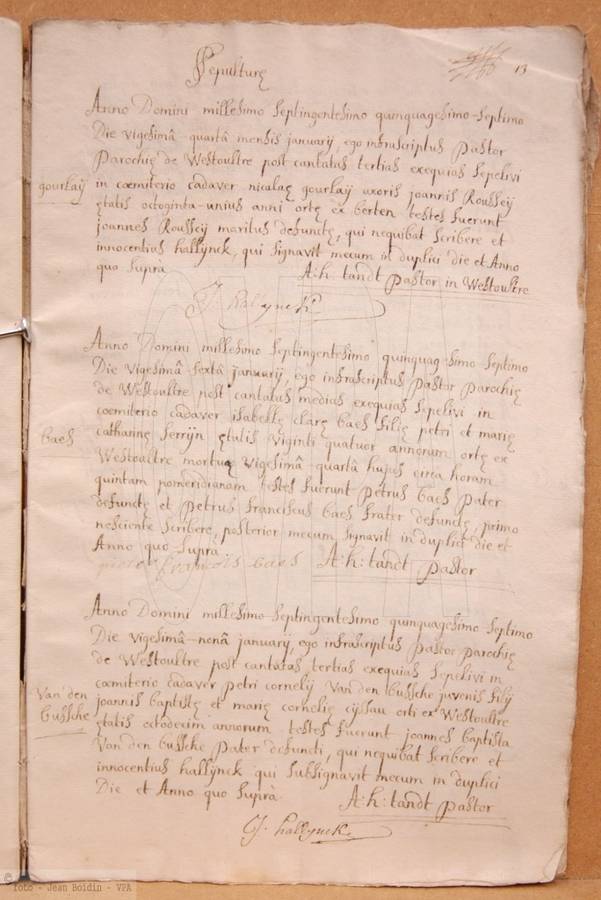 Sepulturę
13
Anno Domini millesimo septingentesimo quinquagesimo-septimo
Die vigesimâ-quartâ mensis januarij, ego infrascriptus pastor
parochię de Westoultre post cantatas tertias exequias sepelivi
gourlaÿ
in cœmiterio cadaver nicolaę gourlaÿ uxoris joannis Rousseij
ętatis octoginta-unius anni ortę ex berten testes fuerunt
joannes Rousseij maritus defunctę, qui nequibat scribere et
innocentius hallÿnck, qui signavit mecum in duplici die et Anno
quo supra
A:h: tandt pastor in Westoultre
J. hallynck
Anno Domini millesimo septingentesimo quinquagesimo septimo
Die vigesimâ sextâ januarij, ego infrascriptus pastor parochię
de Westoultre post cantatas medias exequias sepelivi in
cœmiterio cadaver isabellę clarę baes filię petri et marię
baes
catharinę ętatis viginti quatuor annorum ortę ex
Westoultre mortuę vigesimâ-quartâ hujus circa horam
quintam pomeridianam testes fuerunt petrus baes pater
defunctę et petrus franciscus baes frater defunctę, primo
nesciente scribere, posterior mecum signavit in duplici die et
Anno quo supra
A:h: tandt pastor
pieter francois baes
Anno Domini millesimo septingentesimo quinquagesimo septimo
Die vigesimâ-nonâ januarij, ego infrascriptus pastor parochię
de Westoultre post cantatas tertias exequias sepelivi in
cœmiterio cadaver petri cornelij van den bussche juvenis filij
Van den
bussche
joannis baptistę et marię cornelię orti ex Westoultre
ętatis octodecim annorum testes fuerunt joannes baptista
Van den bussche pater defuncti, qui nequibat scribere et
innocentius hallÿnck qui subsignavit mecum in duplici
Die et Anno quo suprà
A:h: tandt pastor
J. hallynck
© foto - Jean Boidin - VPA